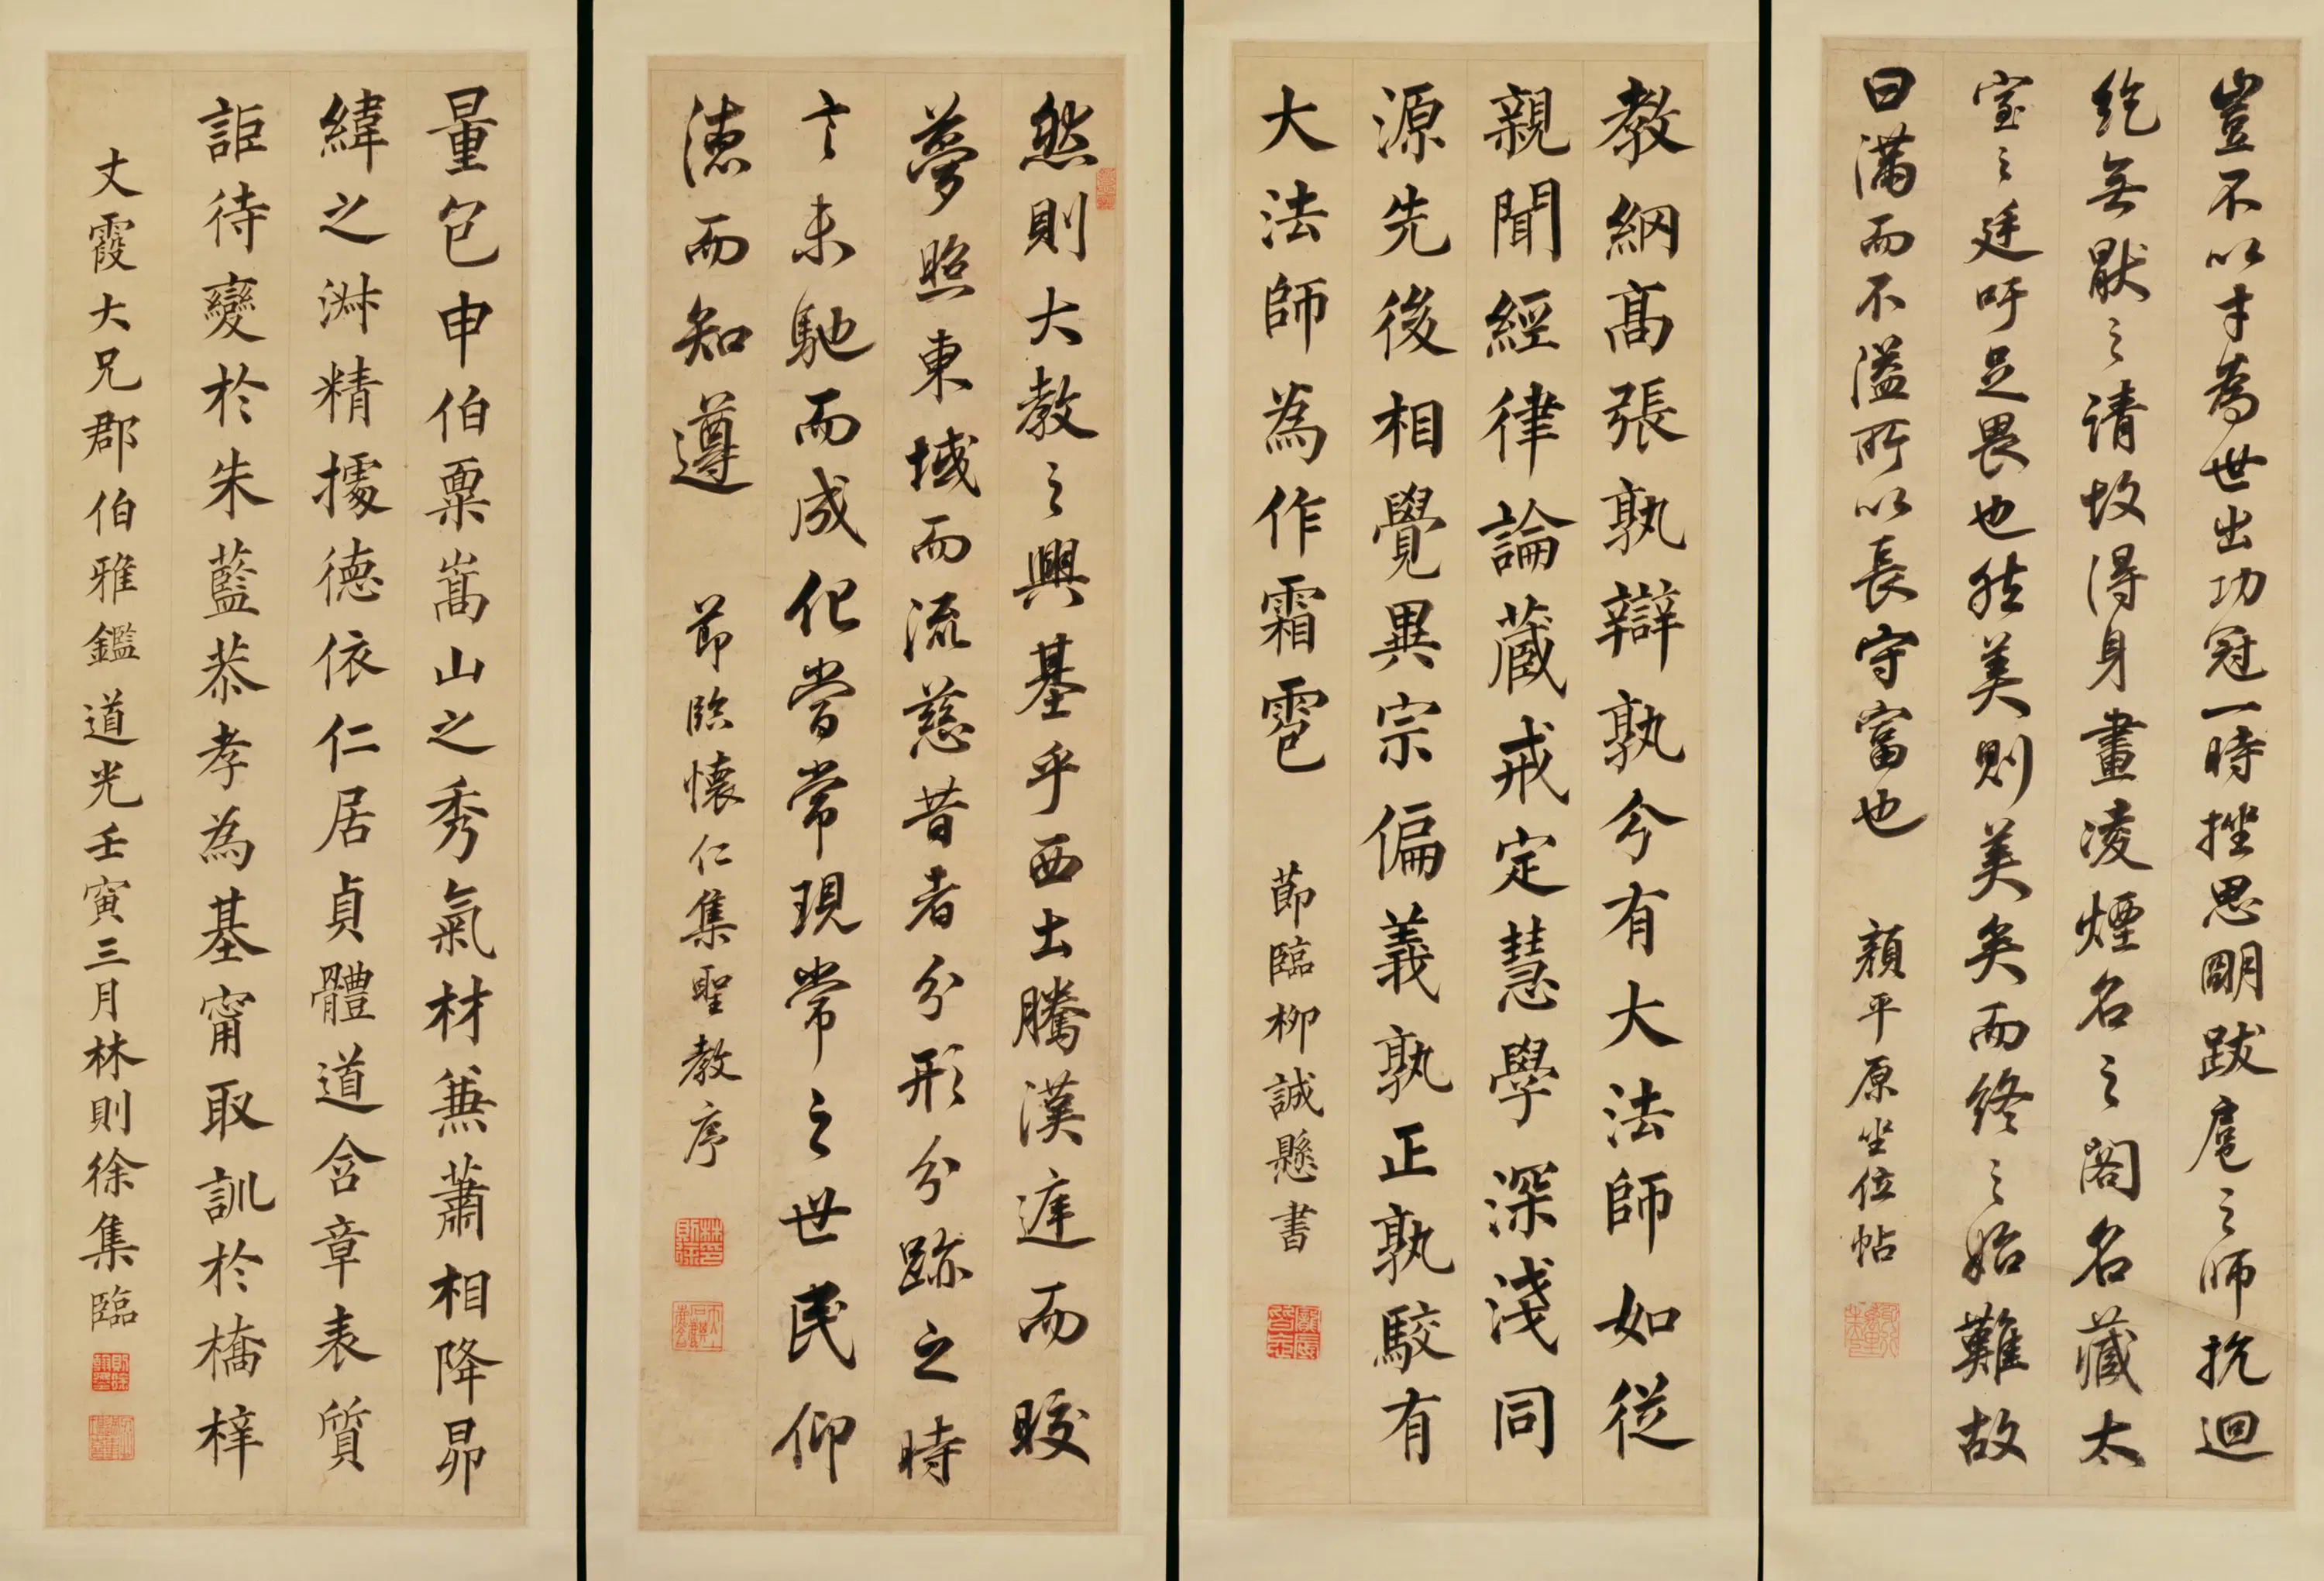 豈不以才為世出功冠一時挫思明跋扈之師抗迴
紇無猒之請故得身畫凌煙名之閣名藏太
室之廷吁足畏也然美則美矣而終之始難故
曰滿而不溢所以長守富也 顏平原坐位帖
教網高張孰辯孰分有大法師如從
親聞經律論藏戒定慧學深淺同
源先後相覺異宗偏義孰正孰駮有
大法師為作霜雹 節臨柳誠懸書
然則大教之興基乎西土騰漢庭而皎
夢照東域而流慈昔者分形分跡之時
言未馳而成化當常現常之世民仰
德而知遵 節臨懷仁集聖教序
量包申伯稟嵩山之秀氣材兼蕭相降昴
緯之淋精據德依仁居貞體道含章表質
詎待變於朱藍恭孝為基甯取訓於橋梓
文霞大兄郡伯雅鑑道光壬寅三月林則徐集臨